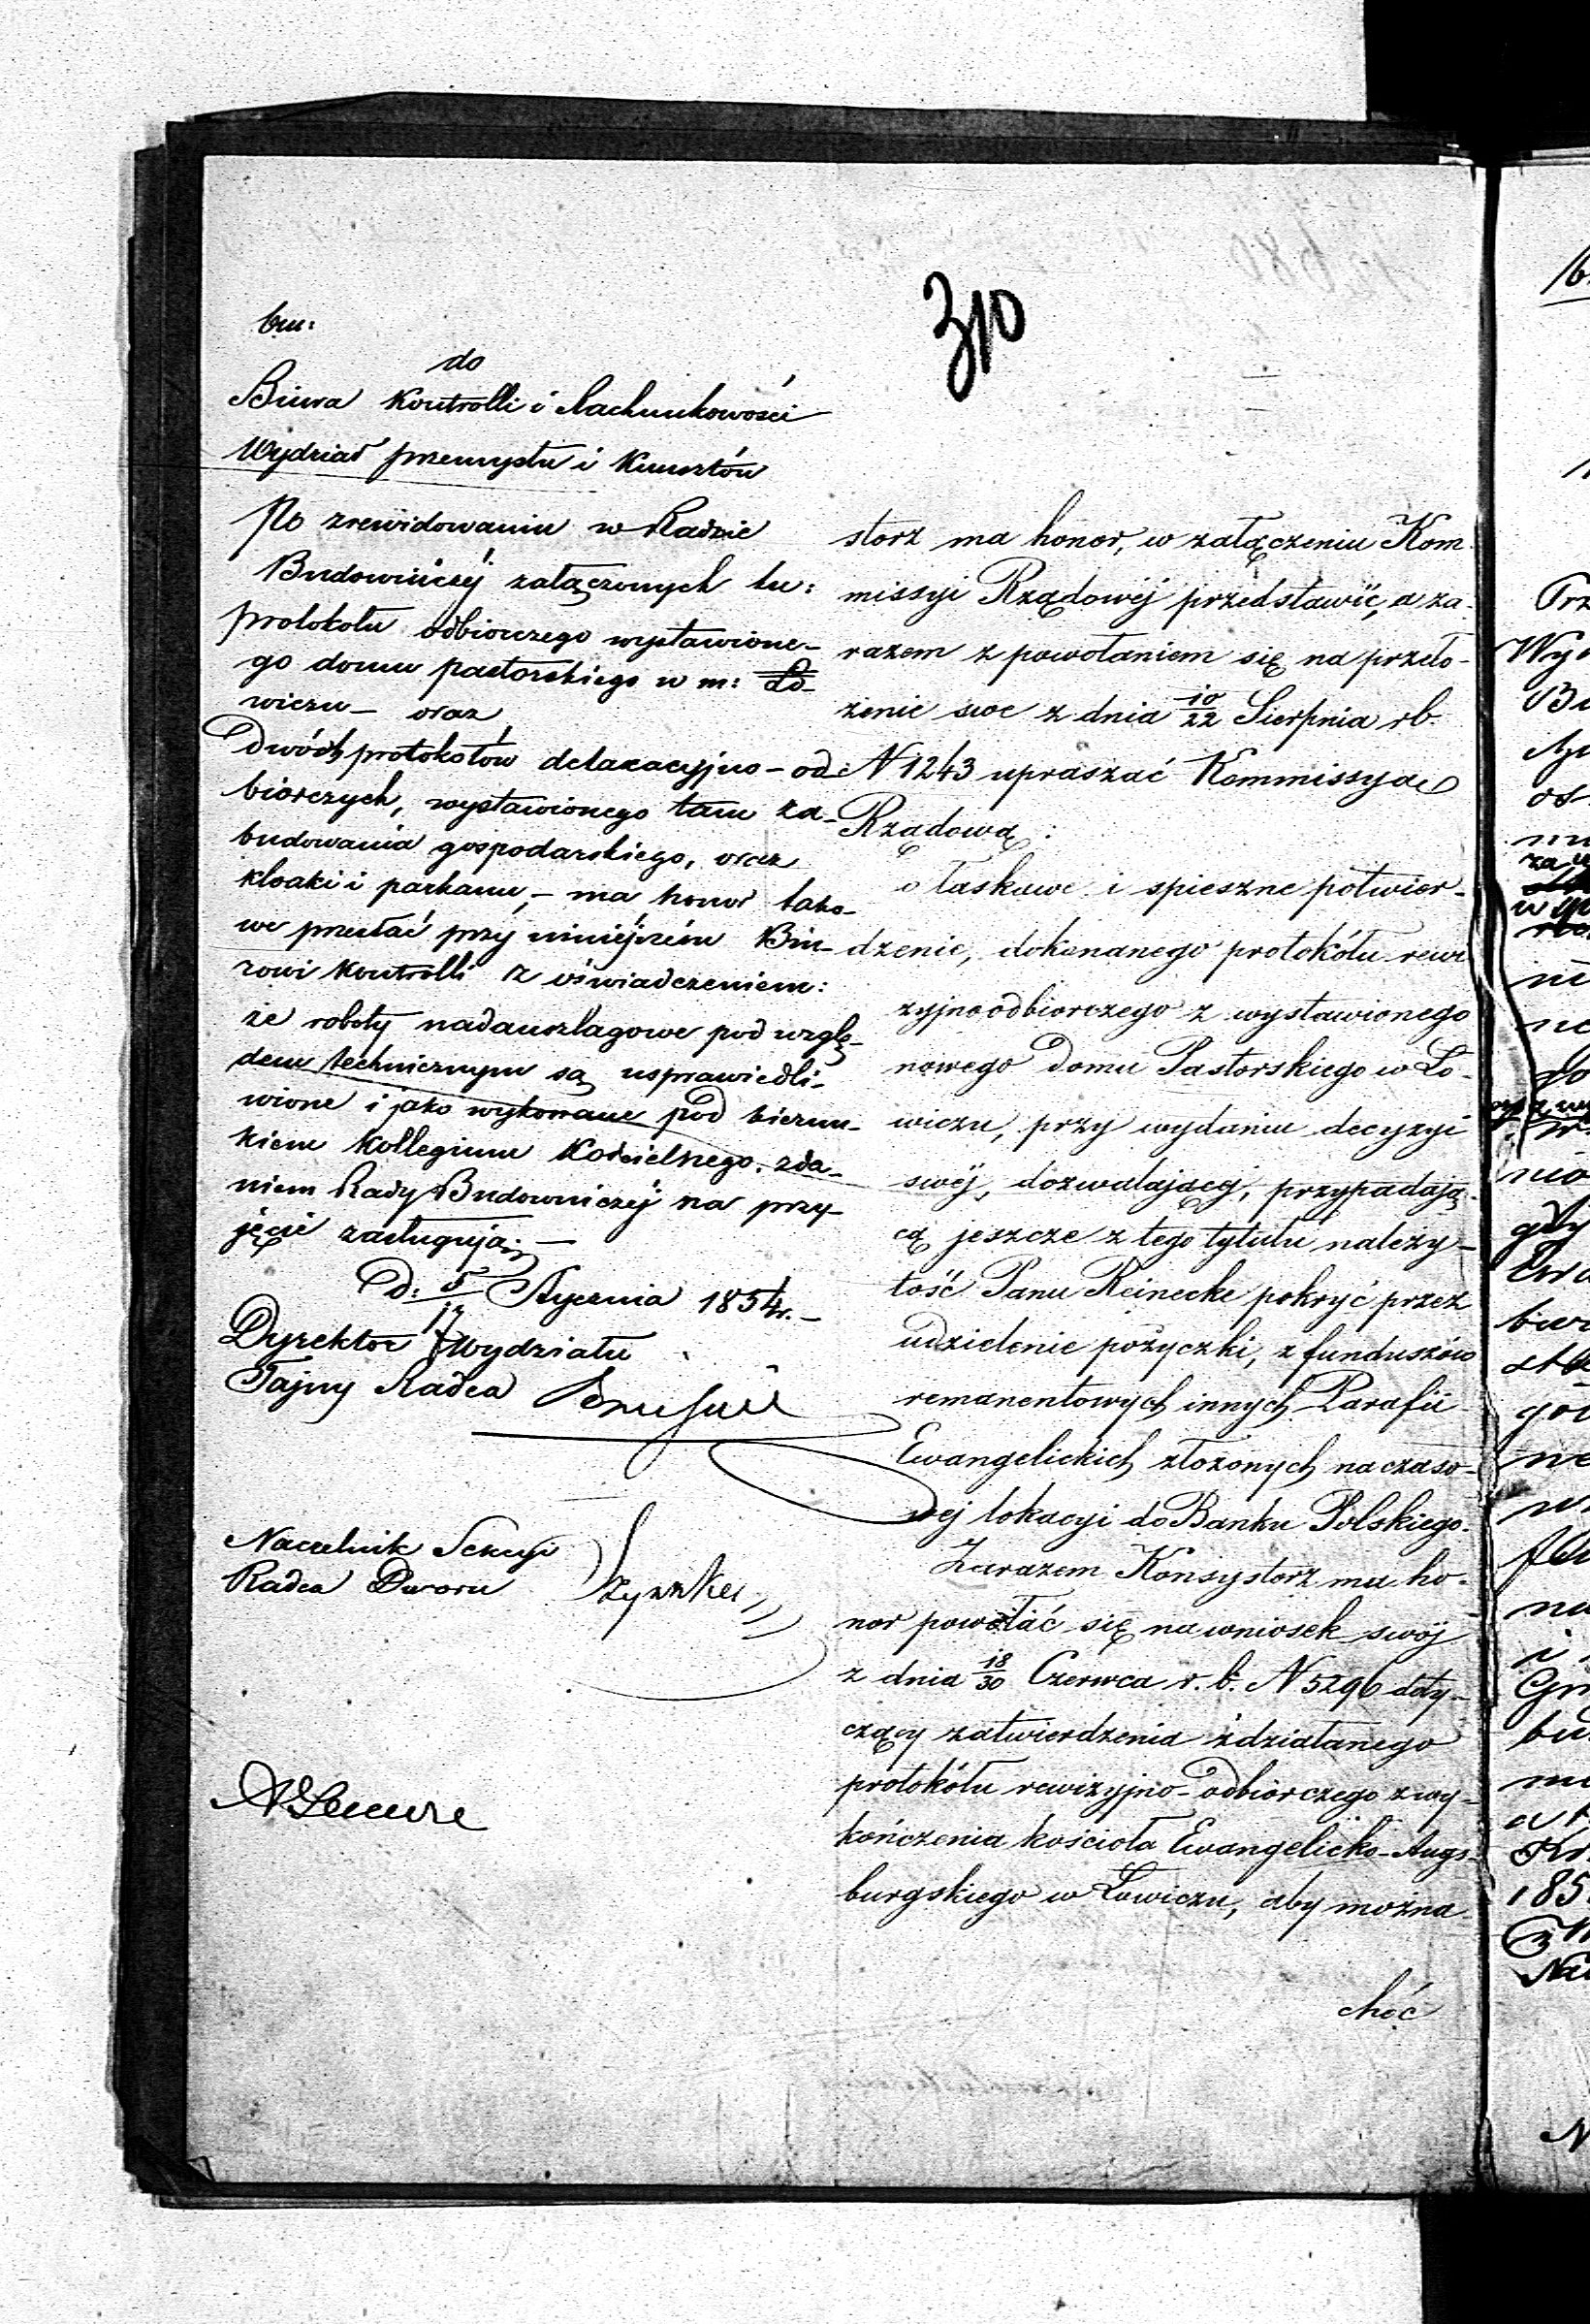 310
bu:
do
Biura Kontrolli i Rachunkowości
Wydział przemysłu i Kunsztów
Po zrewidowaniu w Radzie
Budowniczéj załączonych tu:
protokołu odbiorczego wystawione-
go domu pastorskiego w m: Ło-
wiczu – oraz
Dwóch protokołów detaxacyjno-od-
biorczych, wystawionego tam za-
budowania gospodarskiego, oraz
kloaki i parkanu, – ma honor tako-
we przesłać przy niniéjszém Biu-
rowi Kontrolli z oświadczeniem:
że roboty nadanszlagowe pod wzglę-
dem technicznym są usprawiedli-
wione i jako wykonane pod kierun-
kiem Kollegium Kościelnego, zda-
niem Rady Budowniczéj na przy-
jęcie zasługują; –
D: 5/17 Stycznia 1854 r. –
Dyrektor Wydziału
Tajny Radca
Naczelnik Sekcyi
Radca Dworu
storz ma honor, w załączeniu Kom-
missyi Rządowéj przedstawić, a za-
razem z powołaniem się na przeło-
żenie swe z dnia 10/22 Sierpnia rb.
N 1243 upraszać Kommissyą
Rządową:
o łaskawe i spieszne potwier-
dzenie, dokonanego protokółu rewi
zyjno odbiorczego z wystawionego
nowego Domu Pastorskiego w Ło-
wiczu, przy wydaniu decyzyi
swéj, dozwalającéj, przypadają-
cą jeszcze z tego tytułu należy-
tość Panu Reinecke pokryć przez
udzielenie pożyczki, z funduszów
remanentowych innych Parafii
Ewangelickich złożonych na czaso-
wéj lokacyi do Banku Polskiego.
Zarazem Konsystorz ma ho-
nor powołać się na wniosek swój
z dnia 18/30 Czerwca r. b. N 5296 doty-
czący zatwierdzenia zdziałanego
protokółu rewizyjno-odbiorczego z wy-
kończenia kościoła Ewangelicko-Augs-
burgskiego w Łowiczu, aby można
chóć